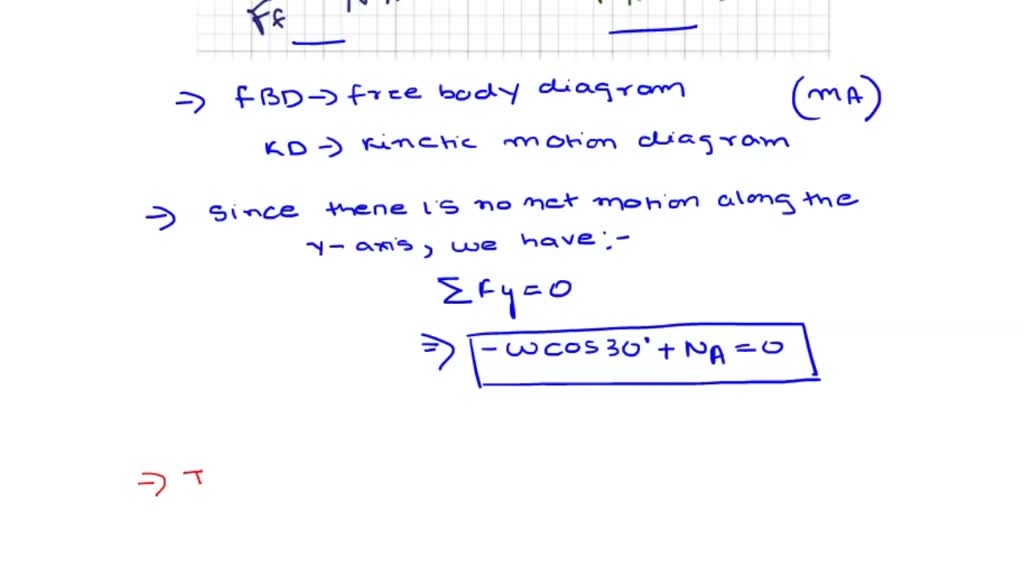 Ff
⇒ FBD → free body diagram (mA)
KD → Kinetic motion diagram
⇒ since there is no net motion along the
y-axis, we have:-
ΣFy=0
⇒ -wcos30°+NA=0
⇒ T